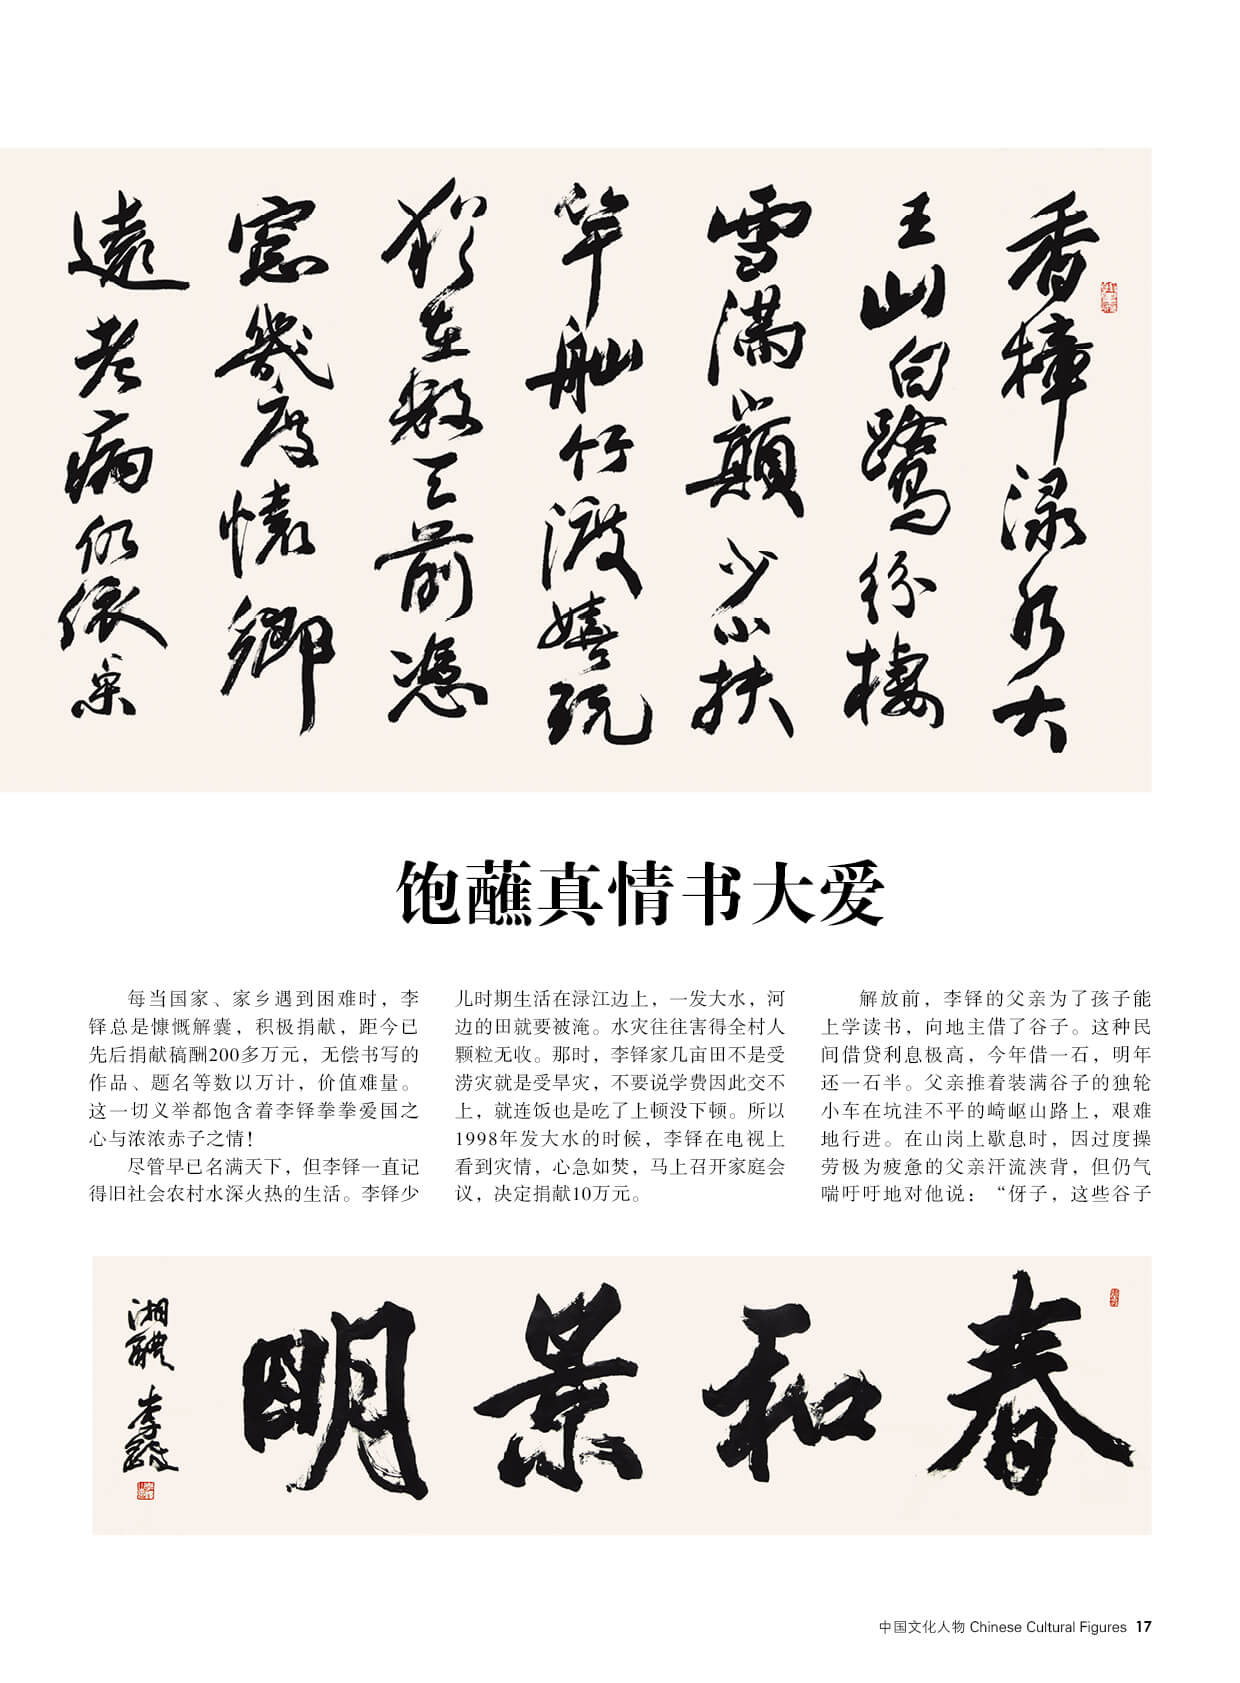 香樟渌水大
王山白鹭纷栖
雪满巅少小扶
竿舢竹渡嬉玩
犹在数天前凭
窗几度怀乡
远老病仍依巢
饱蘸真情书大爱
每当国家、家乡遇到困难时，李
铎总是慷慨解囊，积极捐献，距今已
先后捐献稿酬200多万元，无偿书写的
作品、题名等数以万计，价值难量。
这一切义举都饱含着李铎拳拳爱国之
心与浓浓赤子之情！
尽管早已名满天下，但李铎一直记
得旧社会农村水深火热的生活。李铎少
儿时期生活在渌江边上，一发大水，河
边的田就要被淹。水灾往往害得全村人
颗粒无收。那时，李铎家几亩田不是受
涝灾就是受旱灾，不要说学费因此交不
上，就连饭也是吃了上顿没下顿。所以
1998年发大水的时候，李铎在电视上
看到灾情，心急如焚，马上召开家庭会
议，决定捐献10万元。
解放前，李铎的父亲为了孩子能
上学读书，向地主借了谷子。这种民
间借贷利息极高，今年借一石，明年
还一石半。父亲推着装满谷子的独轮
小车在坑洼不平的崎岖山路上，艰难
地行进。在山岗上歇息时，因过度操
劳极为疲惫的父亲汗流浃背，但仍气
喘吁吁地对他说：“伢子，这些谷子
春和景明
湘醴 李铎
中国文化人物 Chinese Cultural Figures 17